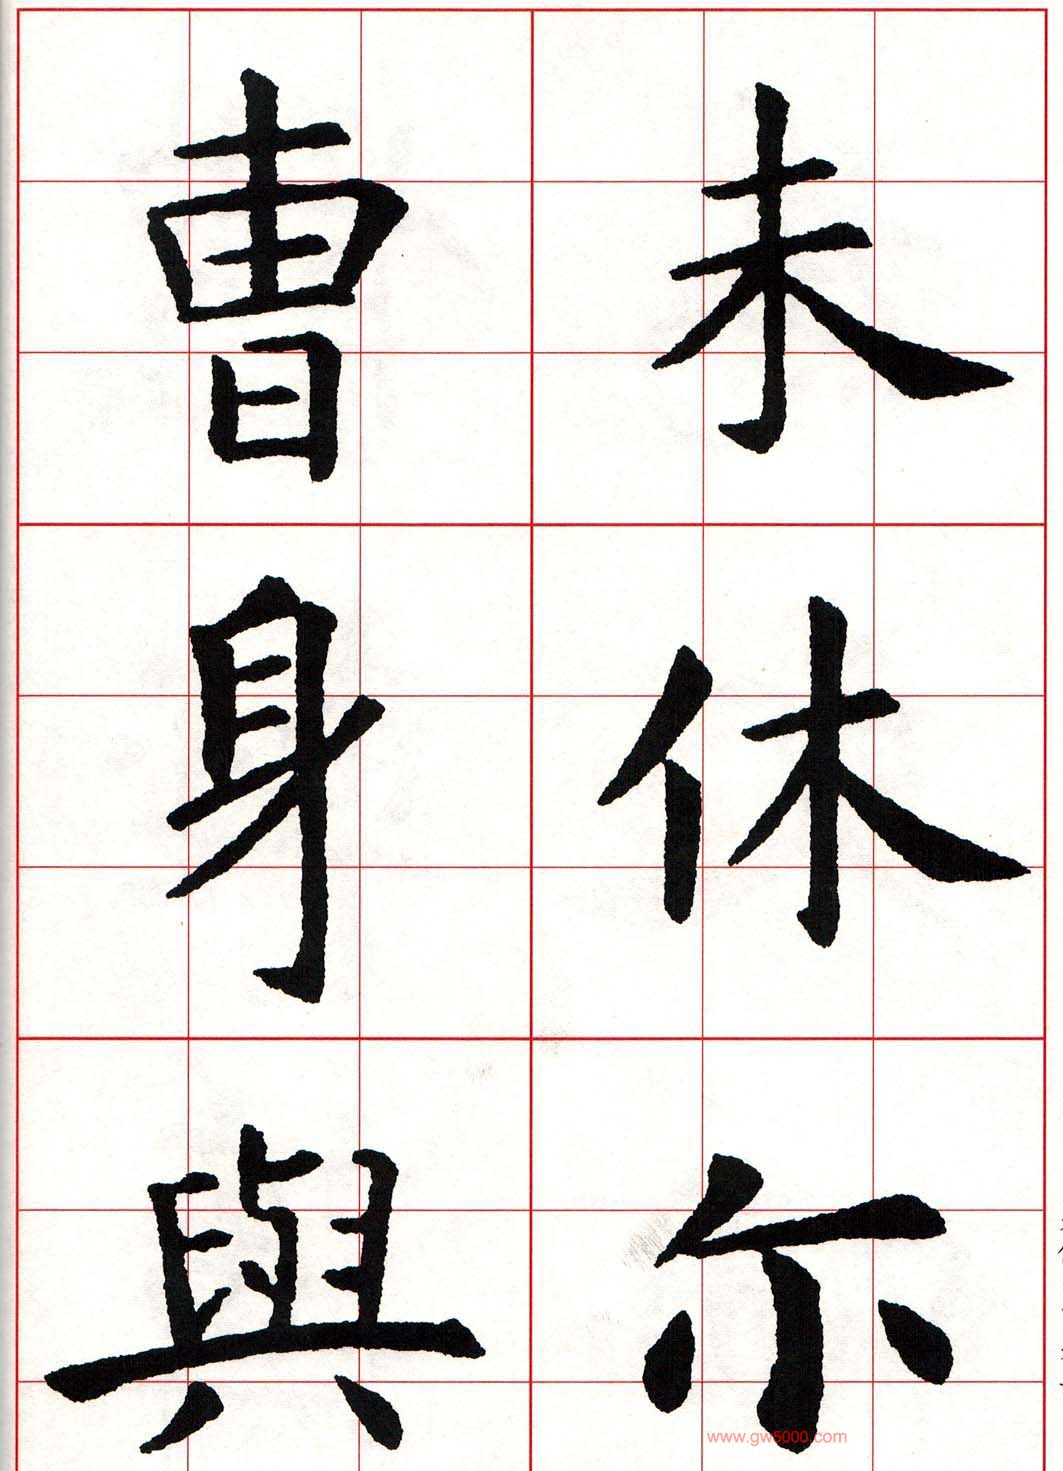 未休尔
曺身與
www.gw5000.com